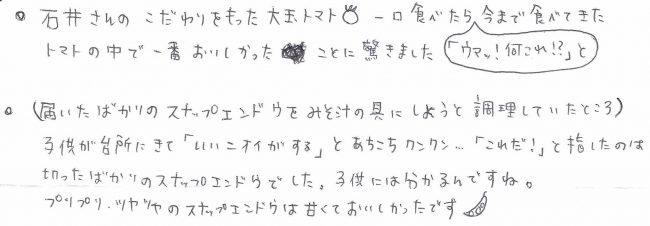 ○ 石井さんの こだわりをもった 大玉トマト 一口食べたら 今まで食べてきた
トマトの中で 一番 おいしかった ことに 驚きました 「ウマッ!何これ!?」と
○ (届いたばかりのスナップエンドウをみそ汁の具にしようと調理していたところ)
子供が台所にきて「いいニオイがする」とあちこちクンクン…「これだ!」と指したのは
切ったばかりのスナップエンドウでした。子供には分かるんですね。
プリプリ・ツヤツヤのスナップエンドウは甘くておいしかったです